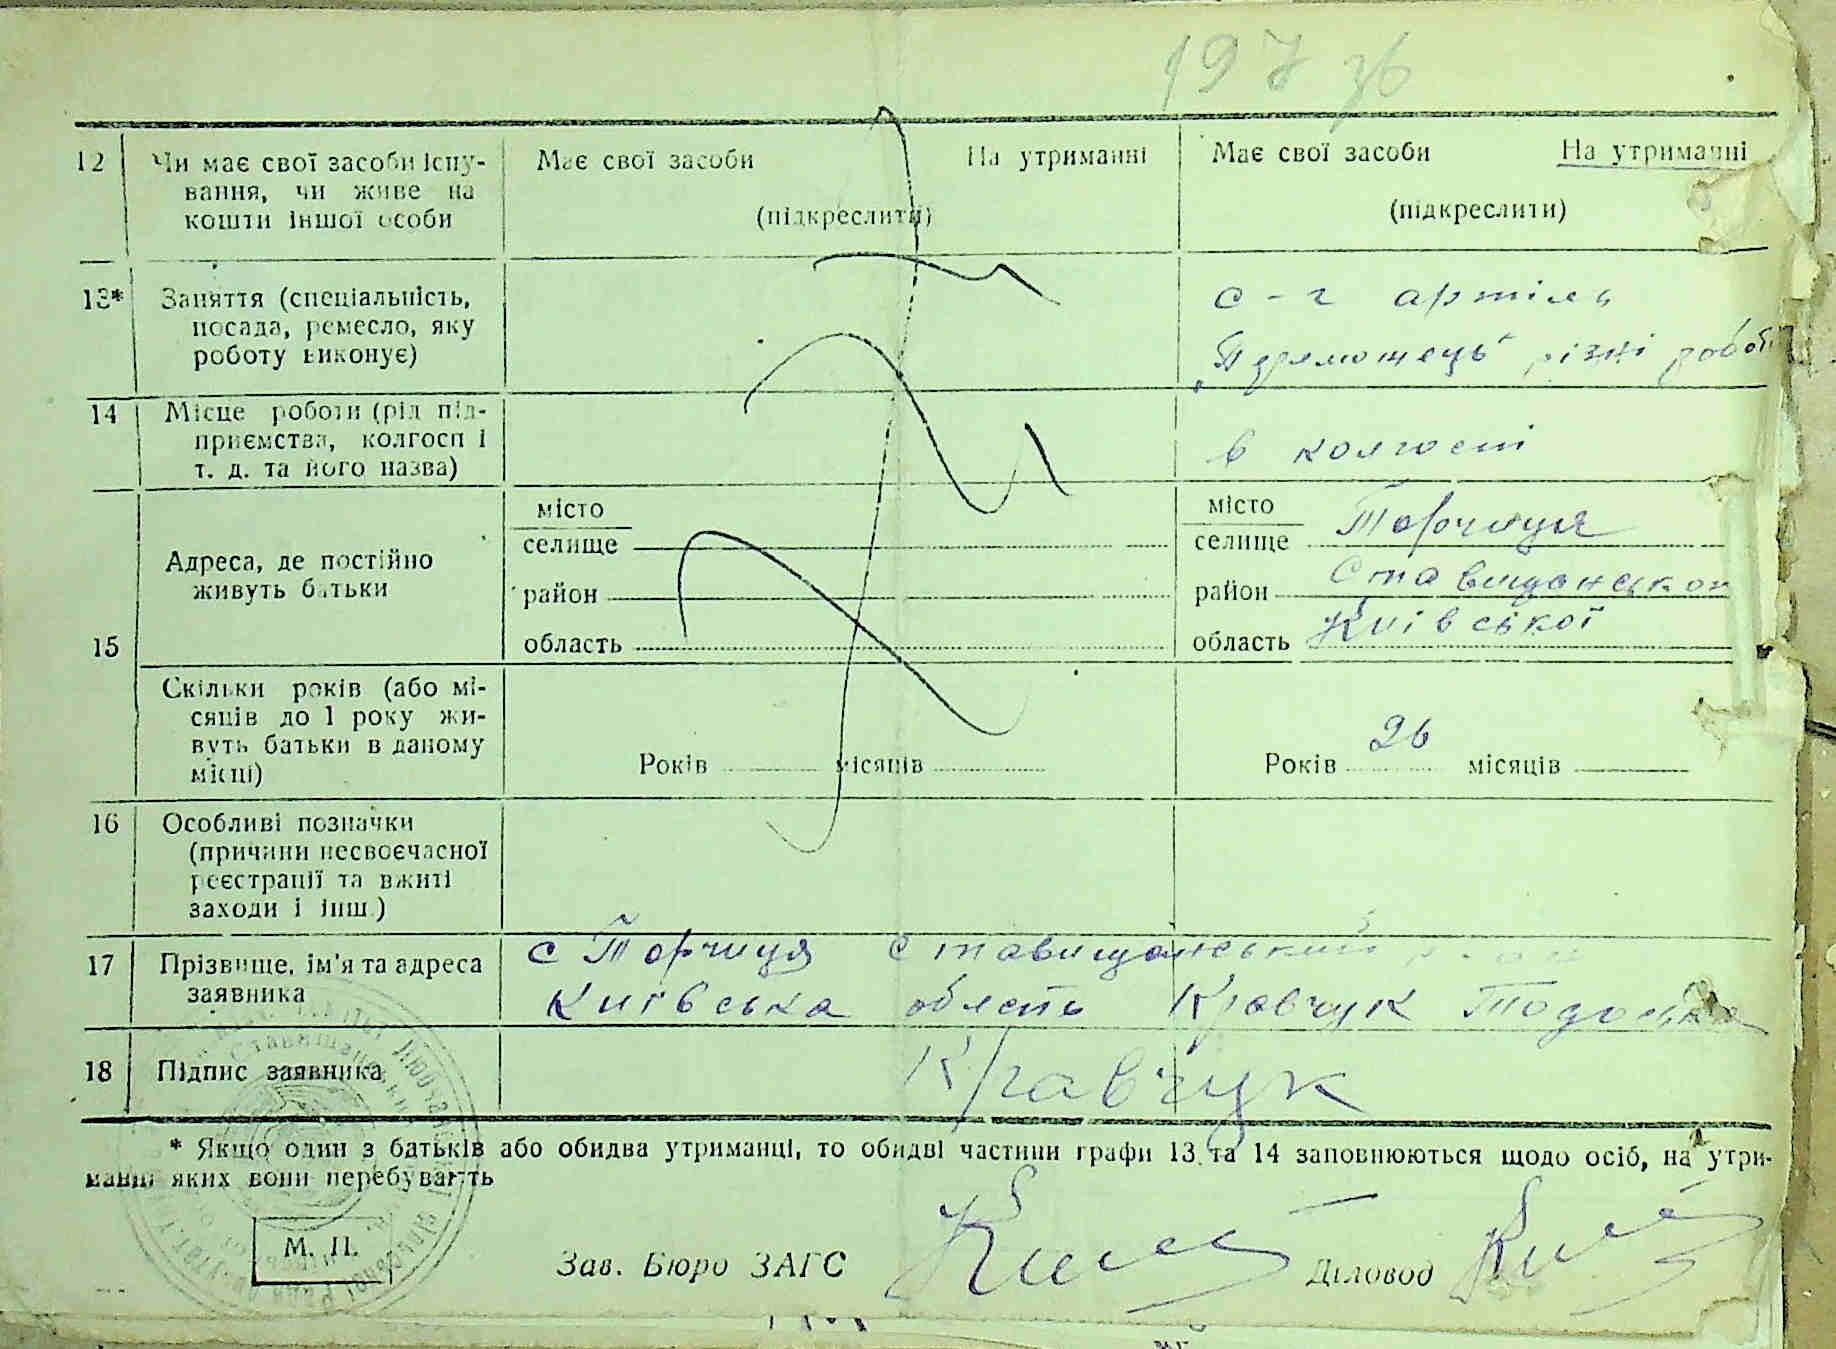 197 зв
12 Чи має свої засоби існу- Має свої засоби На утриманні Має свої засоби На утриманні
вання, чи живе на
кошти іншої особи (підкреслити) (підкреслити)
13* Заняття (спеціальність, с-г артіль
посада, ремесло, яку
роботу виконує) "Переможець" різні робот
14 Місце роботи (рід під-
приємства, колгосп і в колгоспі
т. д. та його назва)
15 Адреса, де постійно
живуть батьки
місто місто
селище селище Торчиця
район район Ставищанськог
область область Київської
Скільки років (або мі-
сяців до 1 року жи-
вуть батьки в даному
місці) Років місяців Років 26 місяців
16 Особливі позначки
(причини несвоєчасної
реєстрації та вжиті
заходи і інш.)
17 Прізвище, ім'я та адреса с Торчиця Ставищанський
заявника Київська область Кравчук Тодоська
18 Підпис заявника Кравчук
* Якщо один з батьків або обидва утриманці, то обидві частини графи 13 та 14 заповнюються щодо осіб, на утри-
манні яких вони перебувають
М. П. Зав. Бюро ЗАГС Діловод